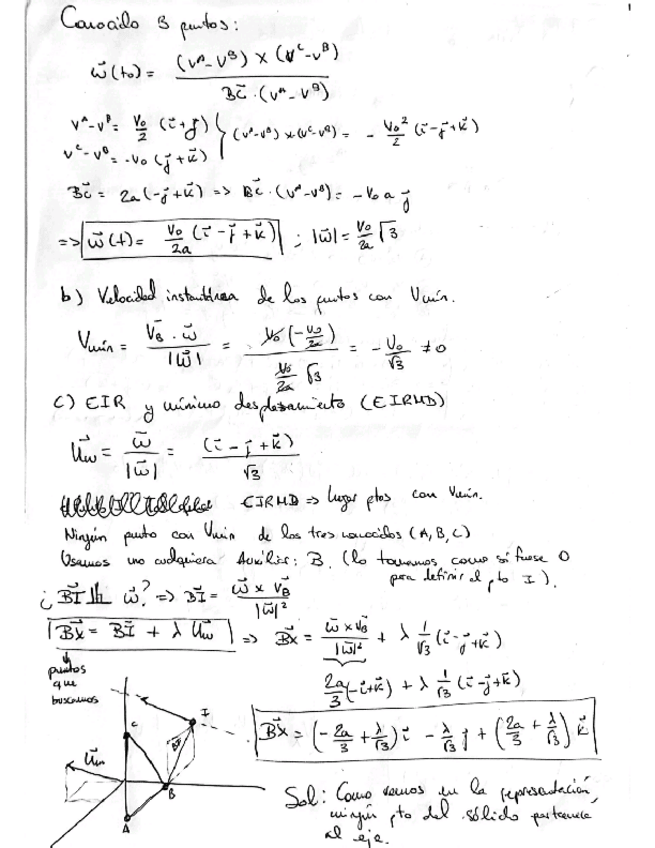 Conocido 3 puntos:
ω⃗(t₀) = (vᴬ-vᴮ) × (vᶜ-vᴮ) / BC⃗·(vᴬ-vᴮ)
vᴬ-vᴮ = V₀/2 (i⃗+j⃗) } (vᴬ-vᴮ) × (vᶜ-vᴮ) = - V₀²/2 (i⃗-j⃗+k⃗)
vᶜ-vᴮ = -V₀ (j⃗+k⃗)
BC⃗ = 2a(-j⃗+k⃗) => BC⃗·(vᴬ-vᴮ) = -V₀ a j⃗
=> ω⃗(t) = V₀/2a (i⃗-j⃗+k⃗) ; |ω⃗| = V₀/2a √3
b) Velocidad instantánea de los puntos con Vmín.
Vmín = V⃗B·ω⃗ / |ω⃗| = V₀(-V₀/2a) / (V₀/2a √3) = - V₀/√3 ≠ 0
c) EIR y mínimo desplazamiento (EIRMD)
U⃗ω = ω⃗/|ω⃗| = (i⃗-j⃗+k⃗)/√3
EIRMD => lugar ptos con Vmín.
Ningún punto con Vmin de los tres conocidos (A, B, C)
Usamos uno cualquiera Auxiliar: B. (lo tomamos como si fuese O
para definir el pto I).
¿BI⃗ ⊥ ω⃗? => BI⃗ = ω⃗ × V⃗B / |ω⃗|²
BX⃗ = BI⃗ + λ U⃗ω => BX⃗ = ω⃗ × V⃗B / |ω⃗|² + λ 1/√3 (i⃗-j⃗+k⃗)
puntos
que
buscamos
2a/3 (-i⃗+k⃗) + λ 1/√3 (i⃗-j⃗+k⃗)
BX⃗ = (-2a/3 + λ/√3) i⃗ - λ/√3 j⃗ + (2a/3 + λ/√3) k⃗
I
C
U⃗ω
B
A
Sol: Como vemos en la representación,
ningún pto del sólido pertenece
al eje.